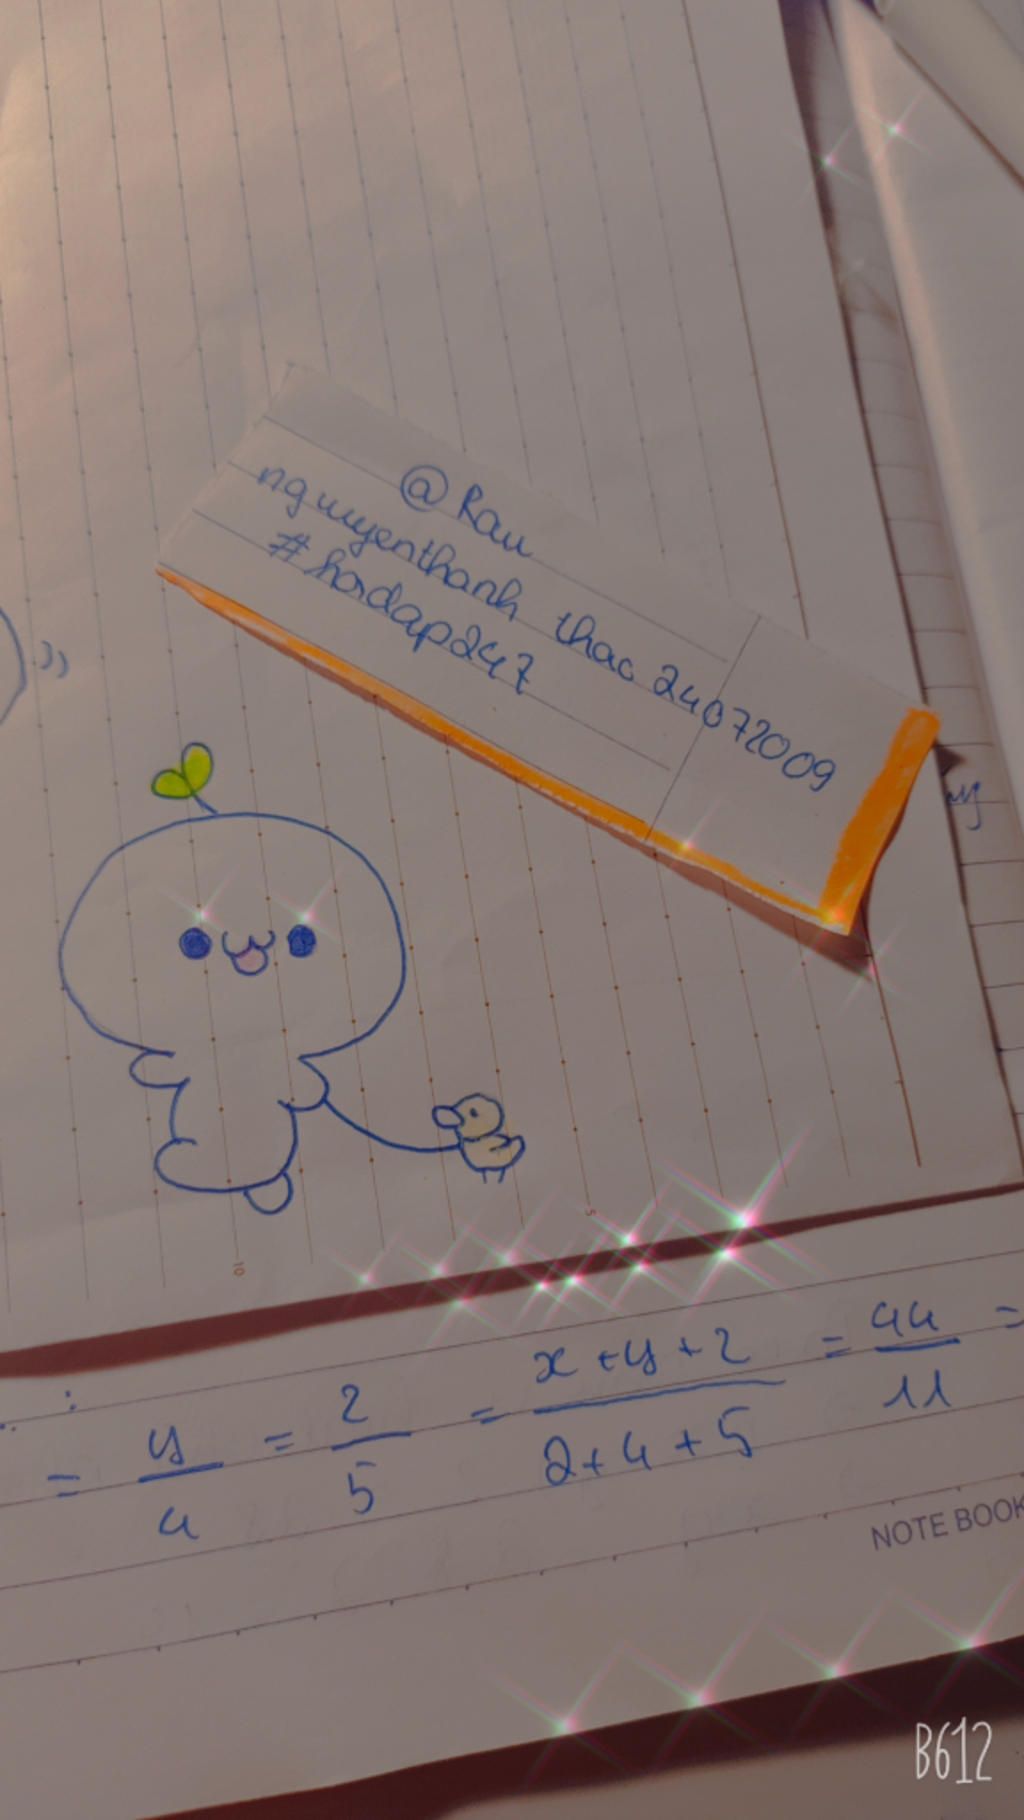 @Rau
nguyenthanh thao 24072009
#hoidap247
= y/4 = z/5 = x+y+z/2+4+5 = 44/11 =
10
5
NOTE BOOK
B612